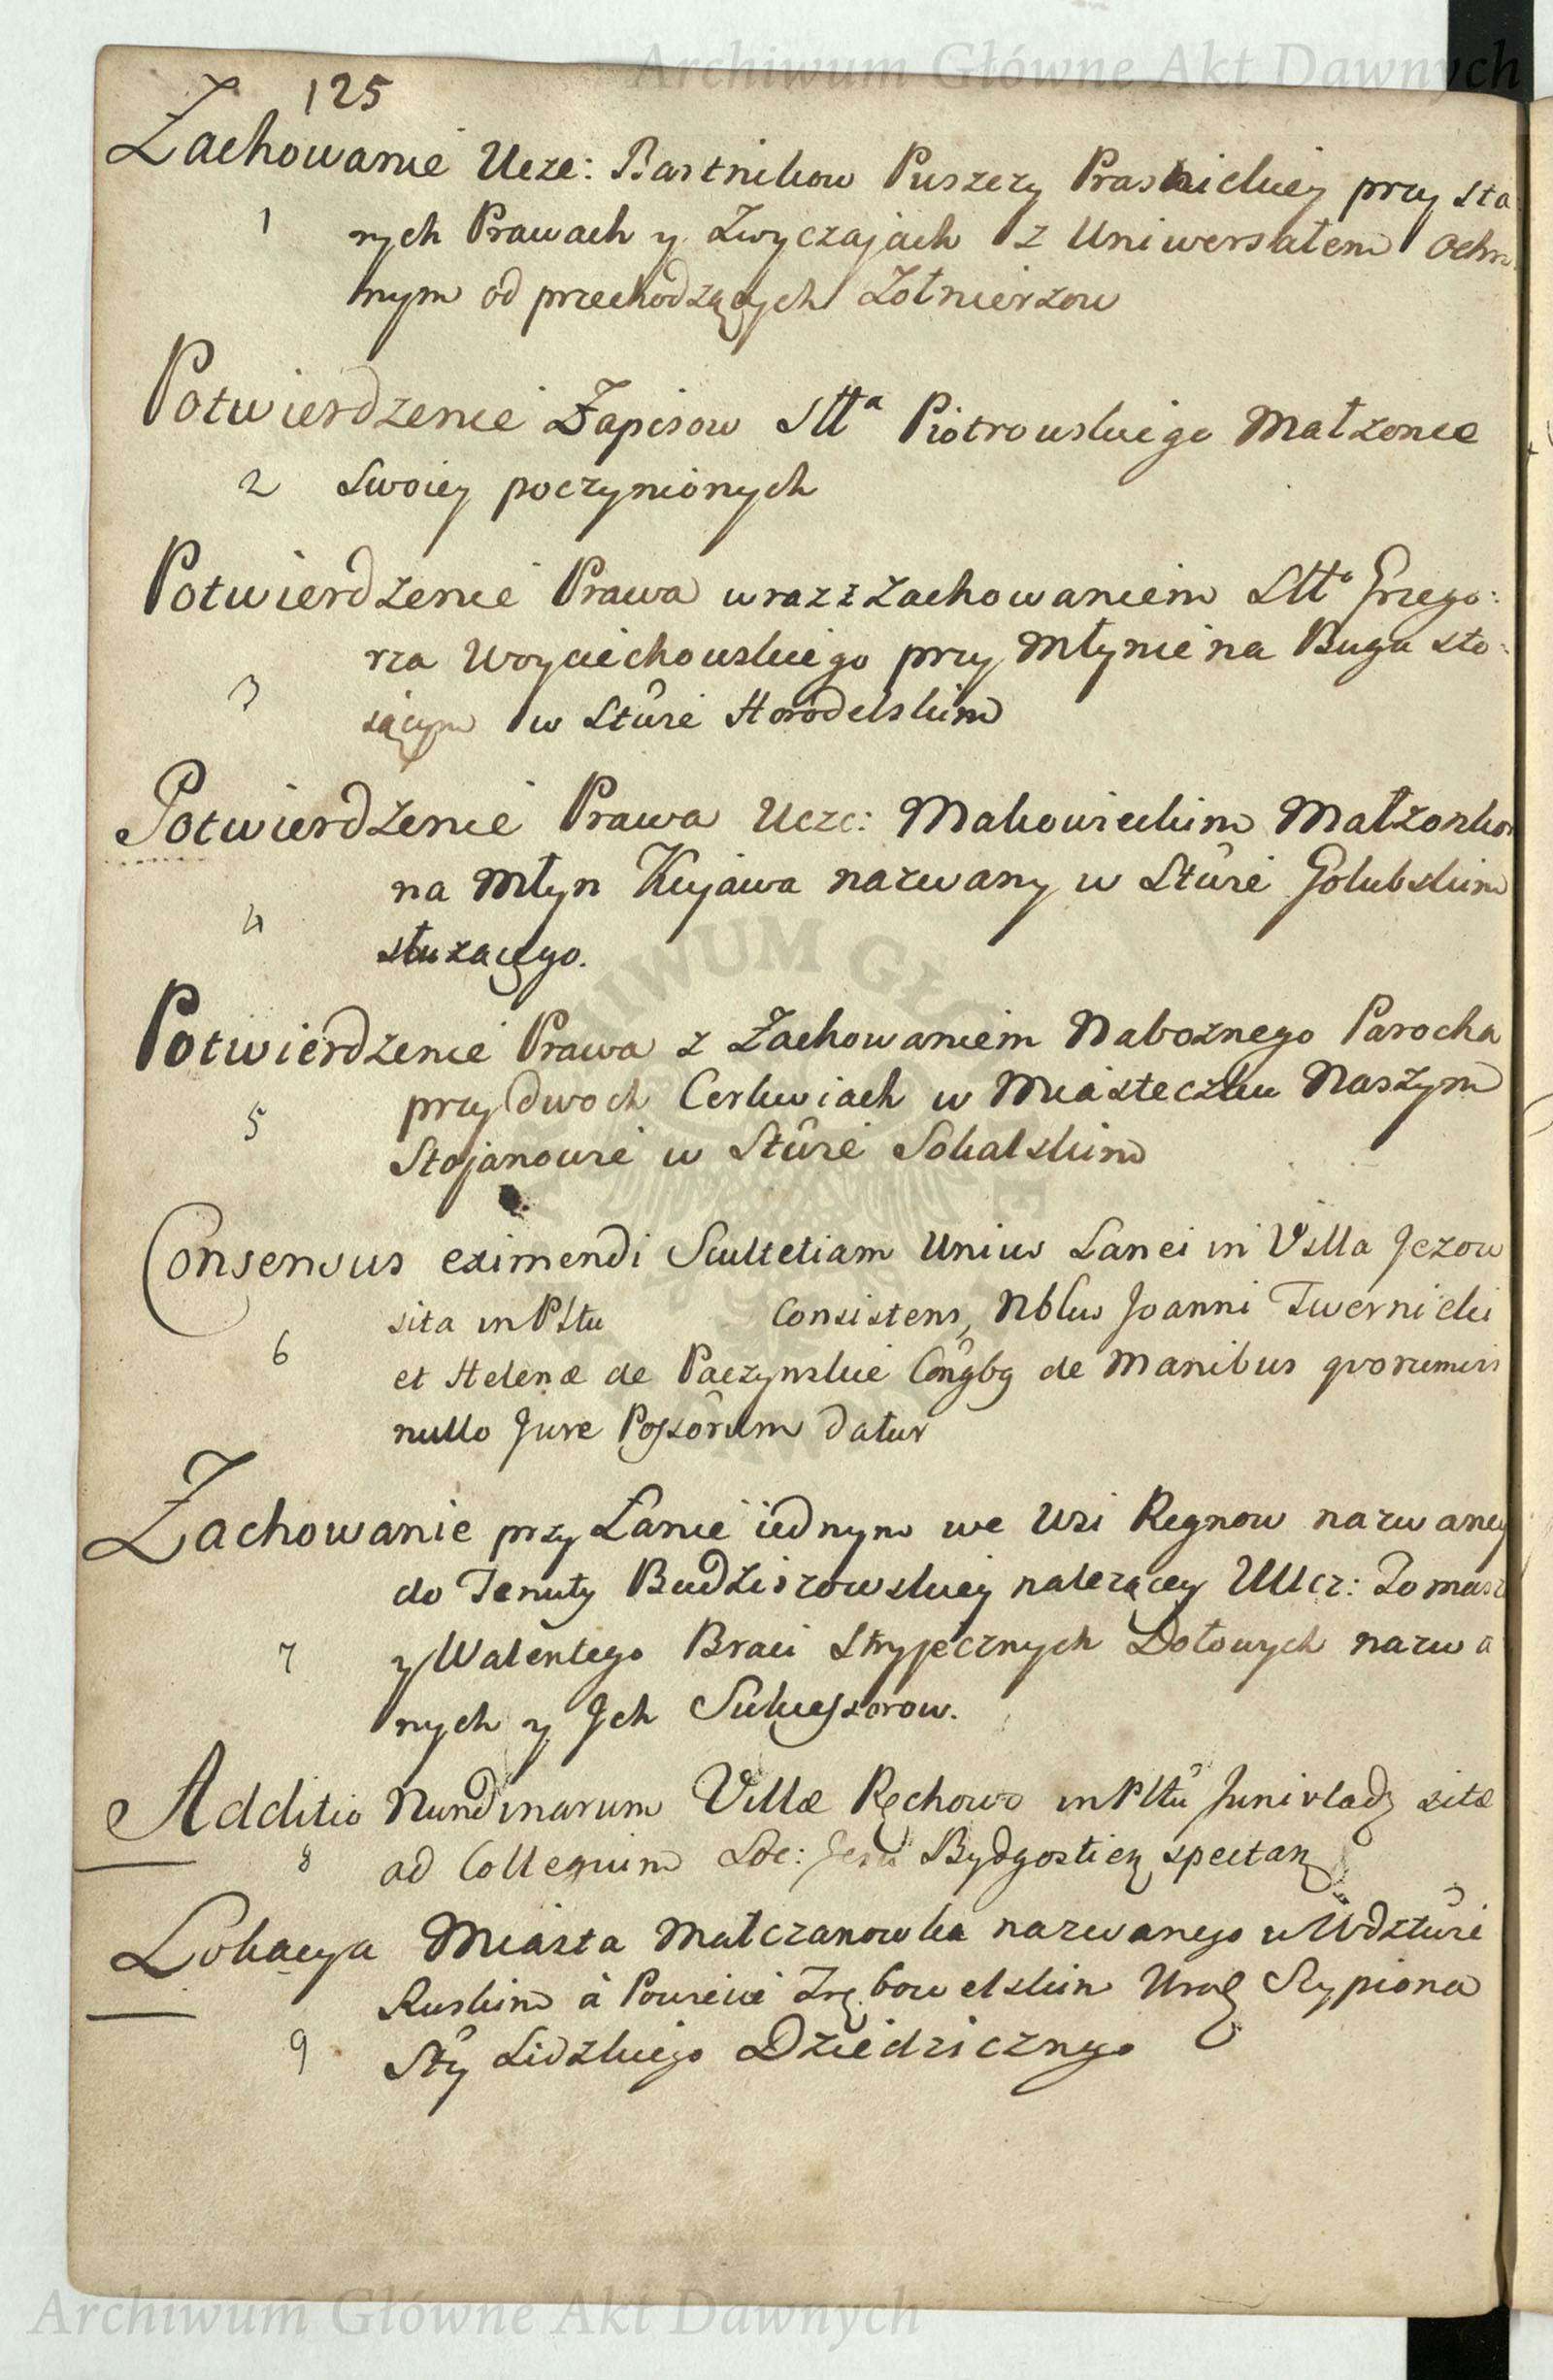 Archiwum Główne Akt Dawnych
125
Zachowanie Ucze: Bartnikow Puszczy Prasnickiey przy sta
1 rych Prawach y Zwyczajach z Uniwersałem Ochro
nnym od przechodzących Zołnierzow
Potwierdzenie Zapisow Sltta Piotrowskiego Małzonce
2 Swoiey poczynionych
Potwierdzenie Prawa wraz z zachowaniem Sltto Grzego:
rza Woyciechowskiego przy Młynie na Bugu sto:
3 iącym w Stûre Horodelskim
Potwierdzenie Prawa Uczc: Makowieckim Małzonkom
na Młyn Kujawa nazwany w Stûre Golubskim
4 słuzącego.
Potwierdzenie Prawa z Zachowaniem Naboznego Parocha
przy dwoch Cerkwiach w Miasteczku Naszym
5 Stojanowie w Stûre Sokalskim
Consensus eximendi Scultetiam Unius Lanei in Villa Jezow
sita in Plttu Consistens, Nblus Joanni Twernicki
6 et Helenæ de Paczynskie Congbg de Manibus qvorumvis
nullo Jure Possôrum datur
Zachowanie przy Łanie iednym we Wsi Regnow nazwaney
do Tenuty Budziszowskiey nalezącey UUcz: Tomasz
7 y Walentego Braci Stryjecznych Dołowych nazwa
nych y Jch Sukcessorow.
Additio Nundinarum Villæ Ręchowo in Plttû Junivladz sitæ
8 ad Collegium Soc: Jesu Bydgostien spectan
Lokacya Miasta Małczanowka nazwanego w Wdztûie
Ruskim à Powiecie Trębowelskim Urod Scypiona
9 Stty Lidzkiego Dziedzicznego
ARCHIWUM GŁÓWNE
Archiwum Główne Akt Dawnych